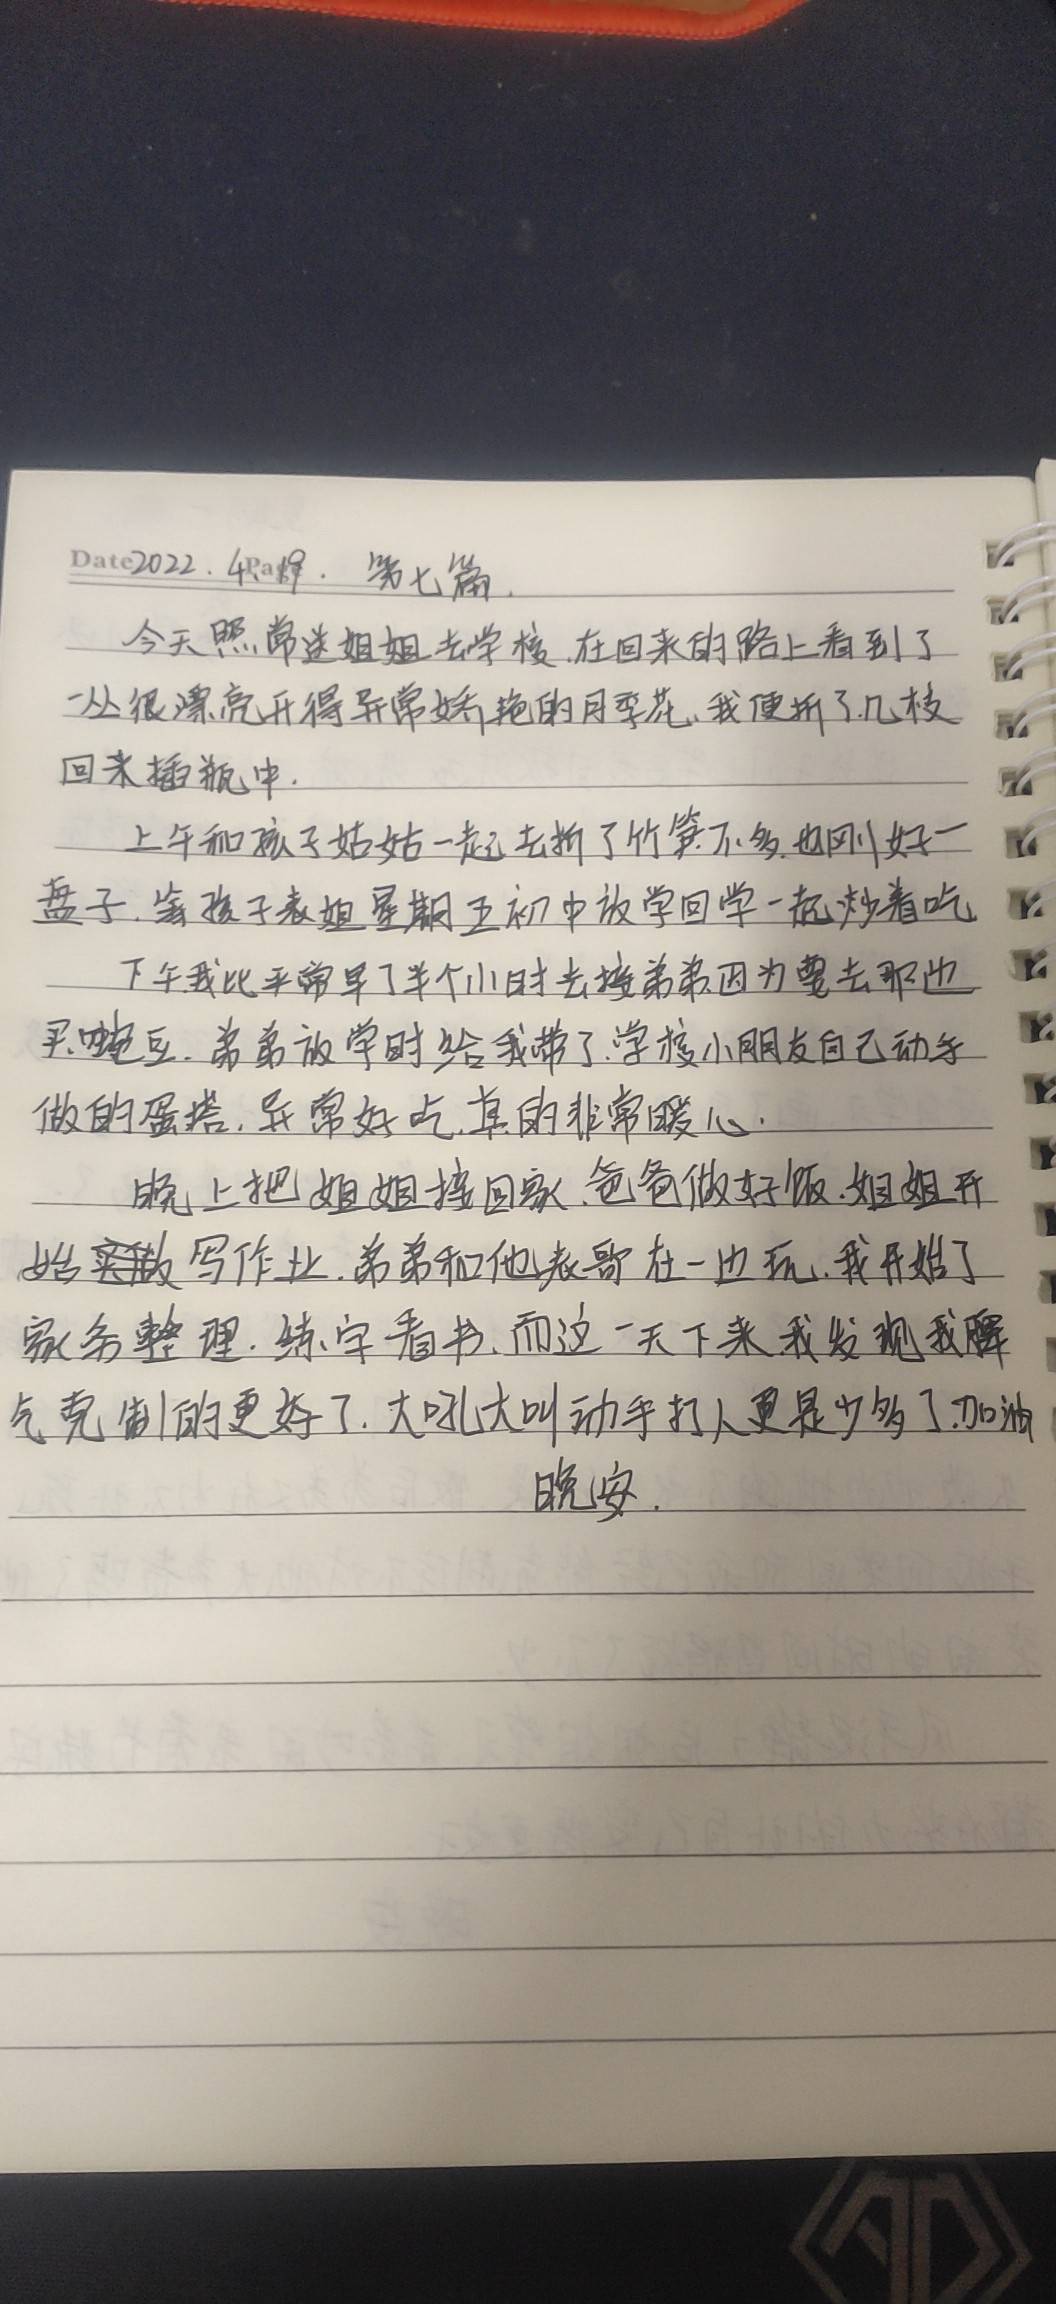 Date 2022.4.19. 第七篇.
今天照常送姐姐去学校.在回来的路上看到了
一丛很漂亮开得异常娇艳的月季花、我便折了几枝
回来插瓶中.
上午和孩子姑姑一起去折了竹笋不多.也刚好一
盘子.等孩子表姐星期五初中放学回学一起炒着吃
下午我比平常早了半个小时去接弟弟因为要去那边
买豌豆.弟弟放学时给我带了学校小朋友自己动手
做的蛋塔.异常好吃.真的非常暖心.
晚上把姐姐接回家.爸爸做好饭.姐姐开
始写作业.弟弟和他表哥在一边玩.我开始了
家务整理.练字看书、而这一天下来我发现我脾
气克制的更好了.大吼大叫动手打人更是少多了.加油
晚安.